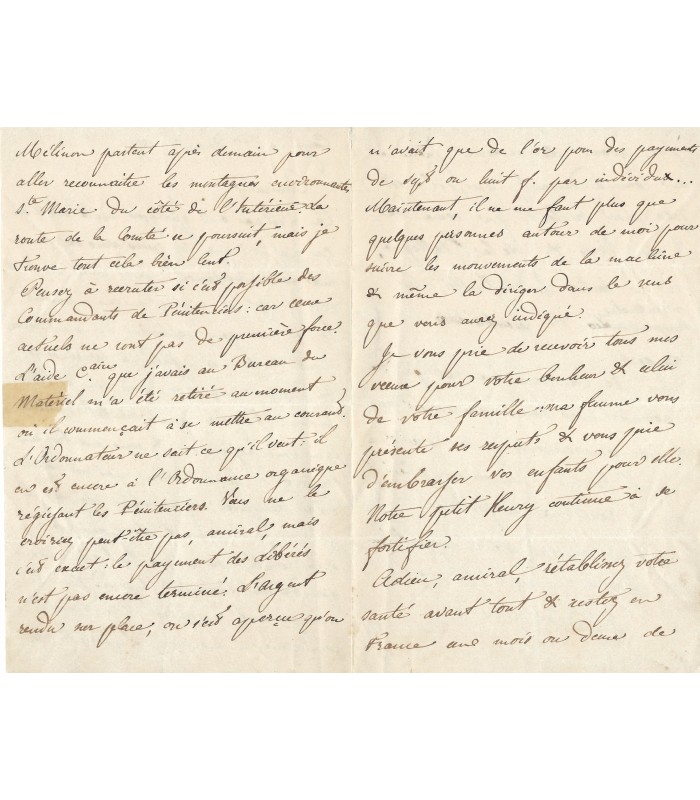 Mélinon partent après demain pour
aller reconnaitre les montagnes environnantes
Ste Marie du côté de l'Intérieur. La
route de la Comté se poursuit, mais je
trouve tout cela bien lent.
Pensez à recruter si c'est possible des
Commandants de Pénitenciers : car ceux
actuels ne sont pas de première force.
L'aide C.aire que j'avais au Bureau du
Matériel m'a été retiré au moment
où il commençait à se mettre au courant.
L'Ordonnateur ne sait ce qu'il veut : il
en est encore à l'Ordonnance organique
régissant les Pénitenciers. Vous ne le
croirez peut-être pas, amiral, mais
c'est exact : le payement des Libérés
n'est pas encore terminé : L'argent
rendu sur place, on s'est aperçu qu'on
n'avait que de l'or pour des payements
de sept ou huit f. par individus...
Maintenant, il ne me faut plus que
quelques personnes autour de moi pour
suivre les mouvements de la machine
& même la diriger dans le sens
que vous aurez indiqué.
Je vous prie de recevoir tous mes
voeux pour votre bonheur & celui
de votre famille : ma femme vous
présente ses respects & vous prie
d'embrasser vos enfants pour elle.
Notre petit Henry continue à se
fortifier.
Adieu, amiral, rétablissez votre
santé avant tout & restez en
France une mois ou deux de